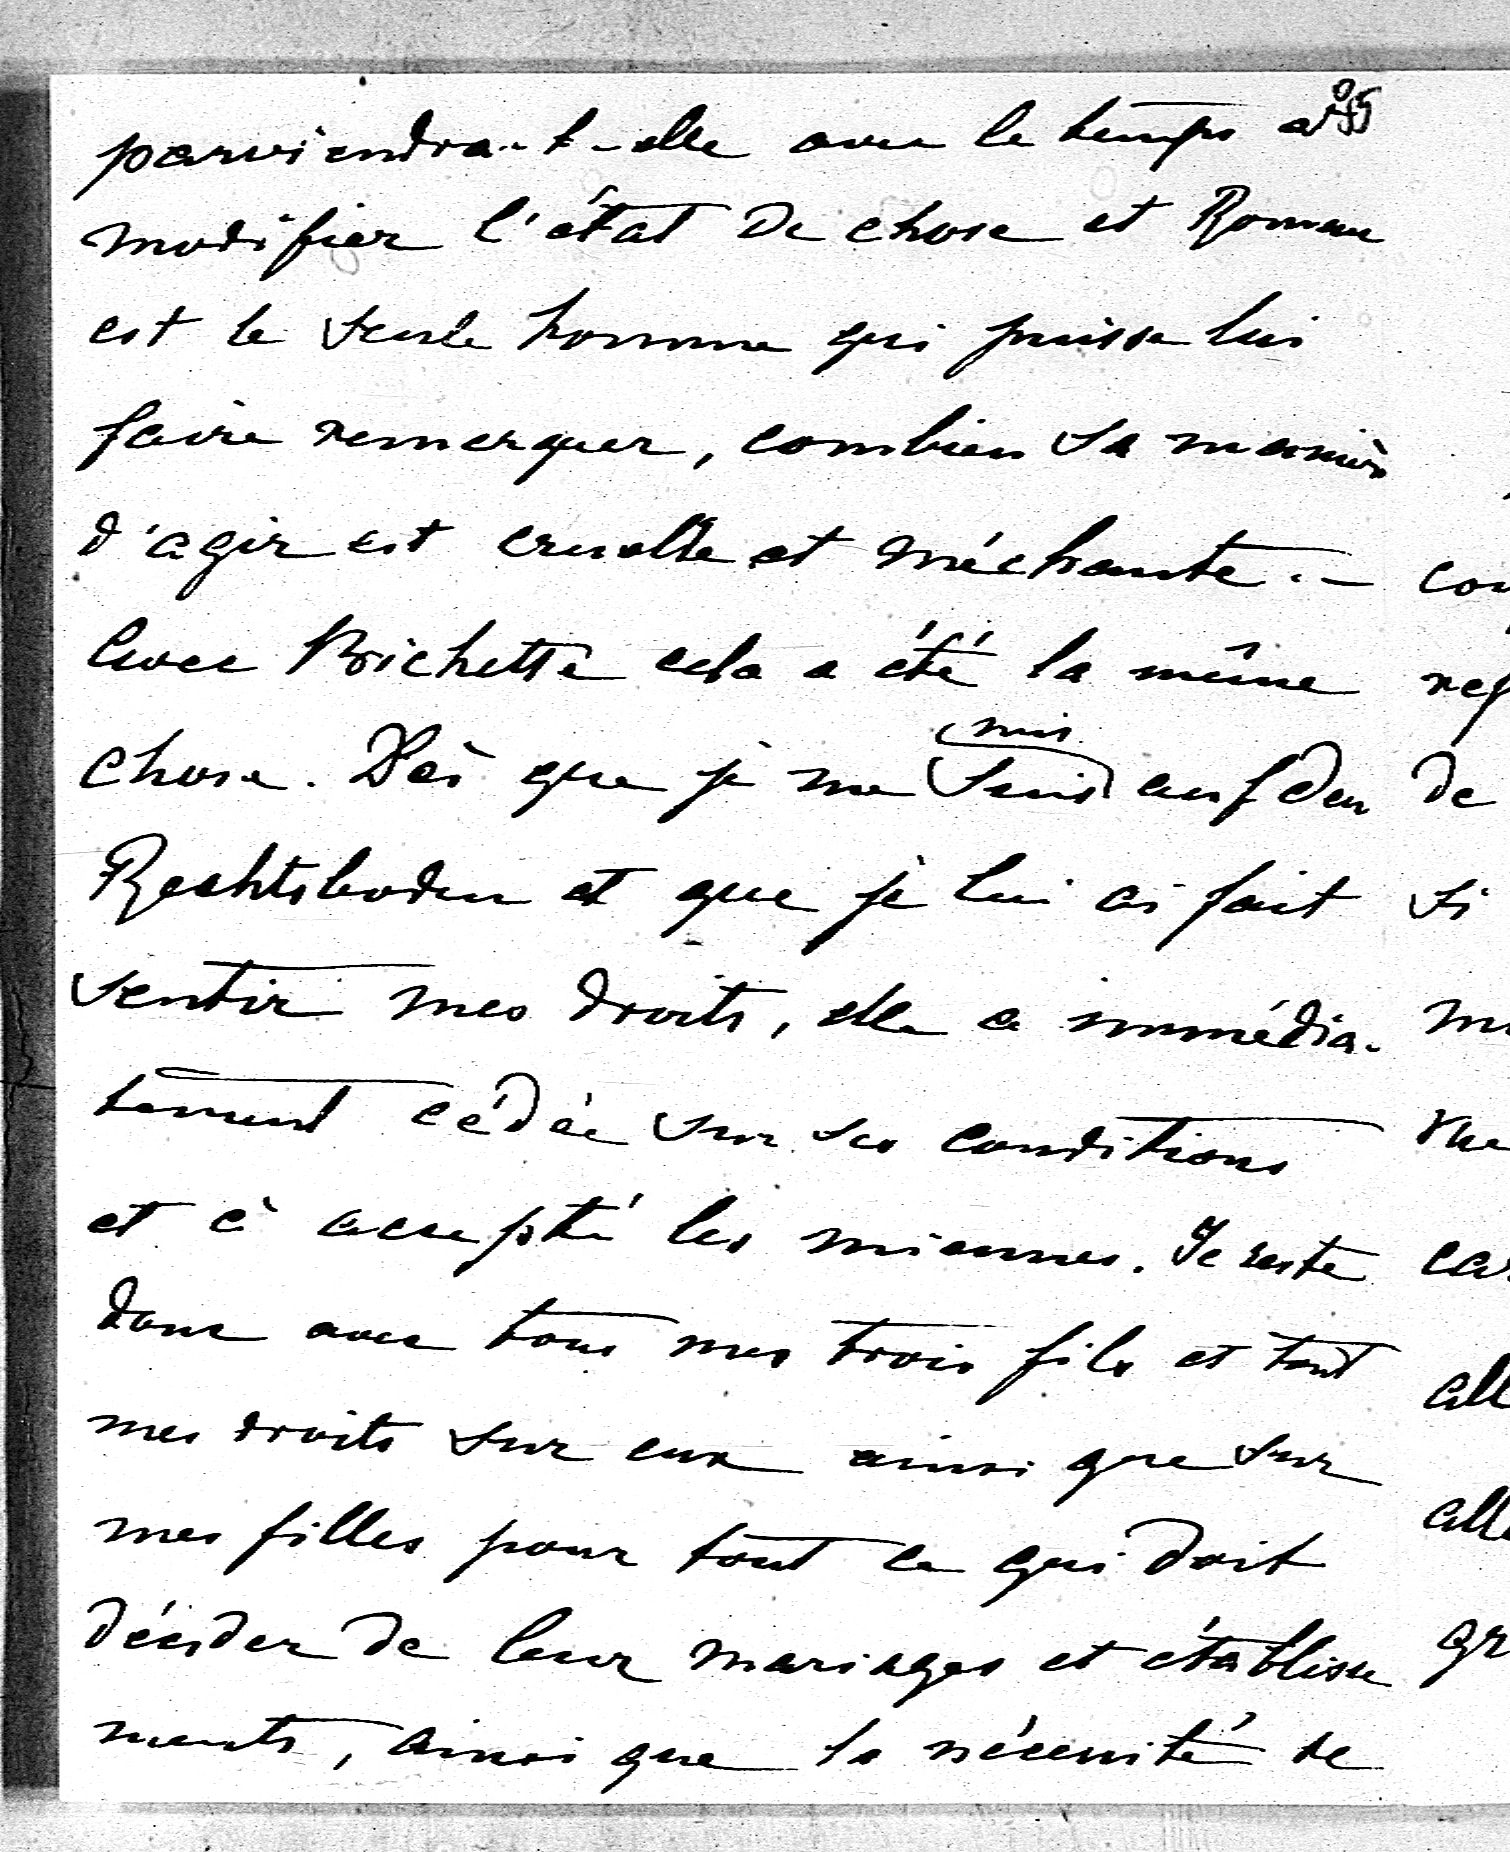 parviendra-t-elle avec le temps a
modifier l'état de chose et Roman
est le seule homme qui puisse lui
faire remarquer, combien sa manière
d'agir est cruelle et méchante. –
Avec Brichette cela a été la même
chose. Dès que je me suis mis auf den
Rechtsboden et que je lui ai fait
sentir mes droits, elle a immédia-
tement cédée sur ses conditions
et à accepté les miennes. Je reste
donc avec tous mes trois fils et tout
mes droits sur eux ainsi que sur
mes filles pour tout ce qui doit
décider de leur mariages et établisse
ments, ainsi que la nécessité de